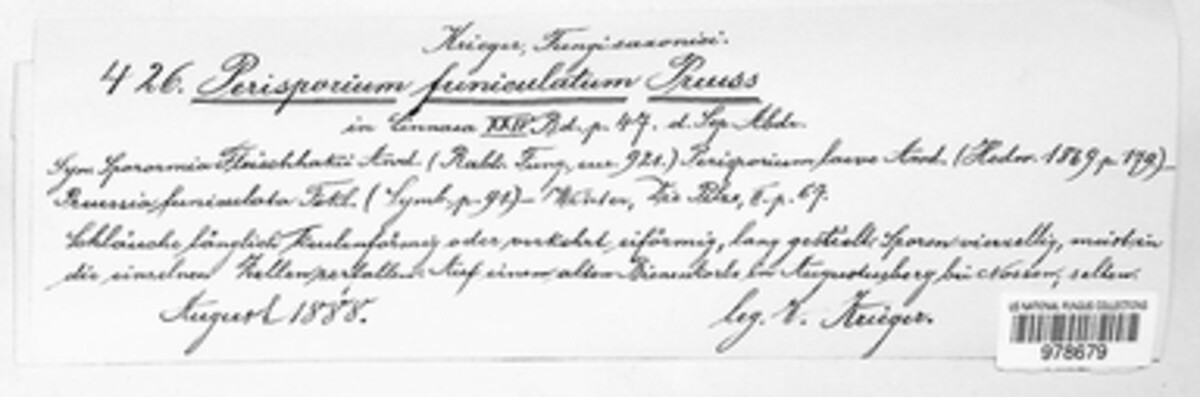 Krieger, Fungi saxonici.
426. Perisporium funiculatum Preuss
in Linnaea XXIV Bd. p. 47. d. Sep. Abdr.
Syn. Sporormia Fleischhakii Awd. (Rabh. Fung. eur. 921.) Perisporium laeve Awd. (Hedw. 1869 p. 179) –
Preussia funiculata Fckl. (Symb. p. 91) – Winter, Die Pilze, II. p. 67.
Schläuche länglich keulenförmig oder verkehrt eiförmig, lang gestielt. Sporen vierzellig, meist in
die einzelnen Zellen zerfallen. Auf einem alten Bienenkorbe im Augustusberg bei Nossen, selten.
August 1888. leg. W. Krieger.
US NATIONAL FUNGUS COLLECTIONS
978679